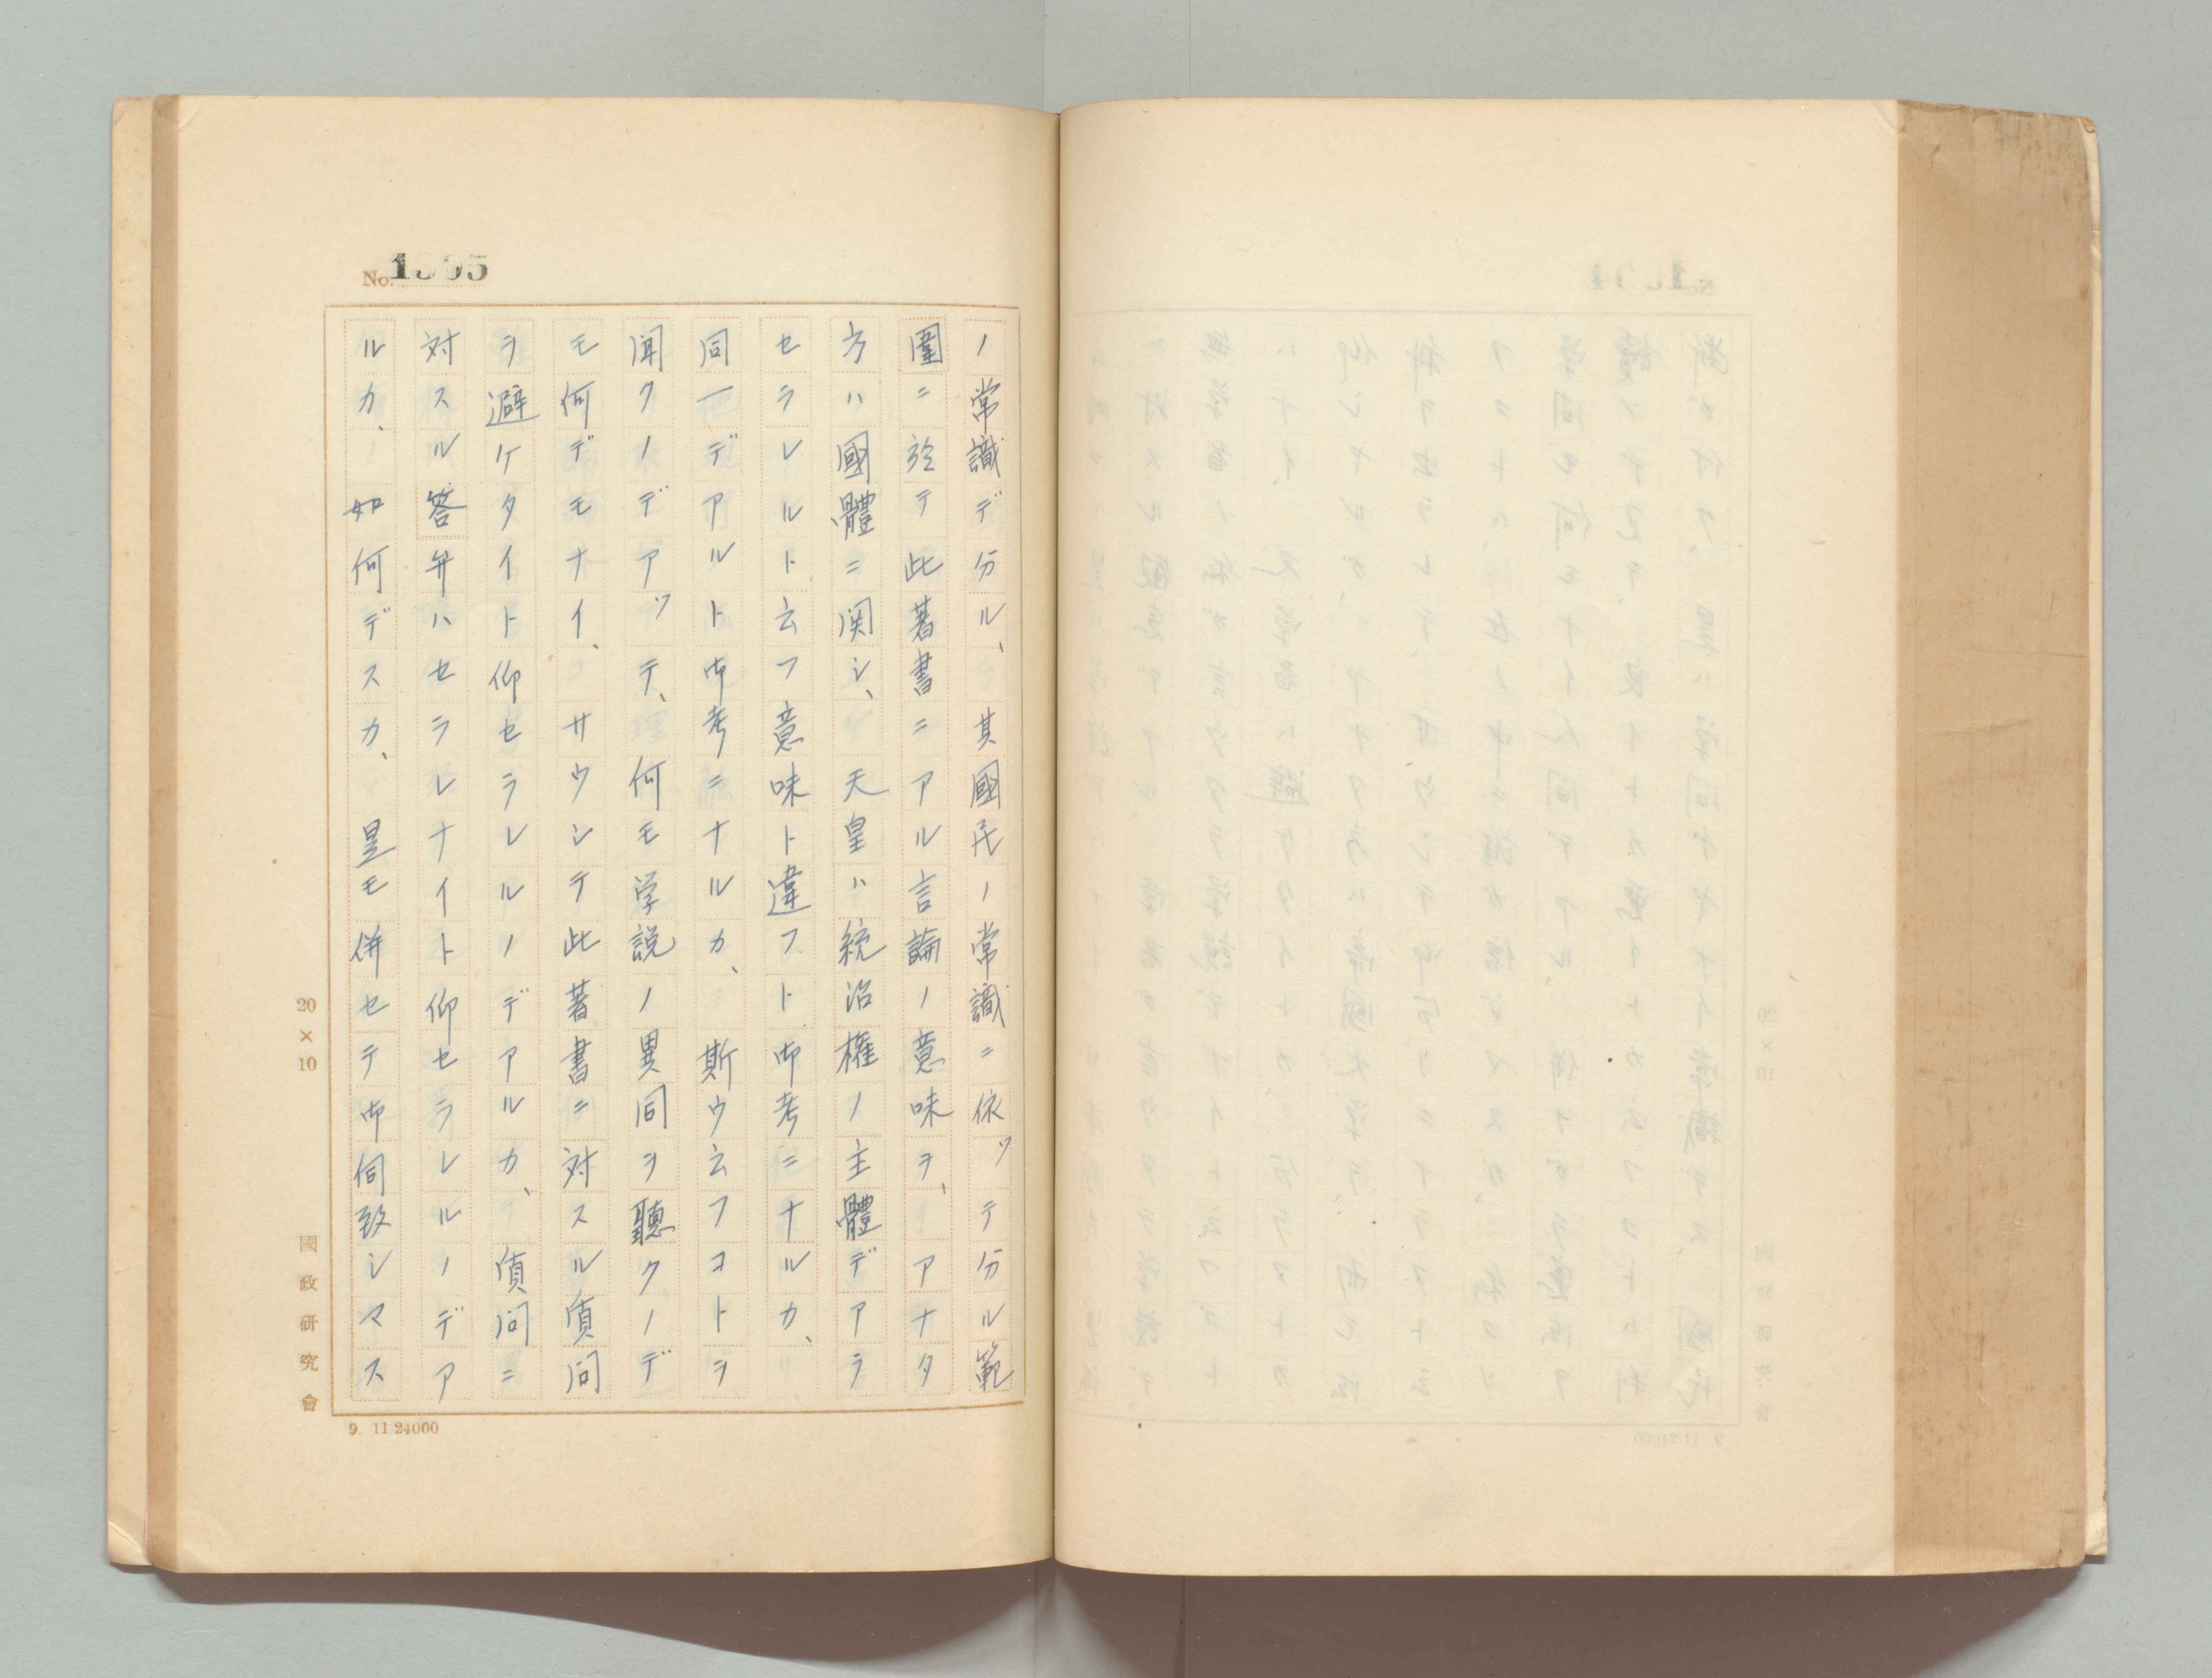 No. 1505
ノ常識デ分ル、其國民ノ常識ニ依ッテ分ル範
圍ニ於テ此著書ニアル言論ノ意味ヲ、アナタ
方ハ國體ニ関シ、天皇ハ統治權ノ主體デアラ
セラレルト云フ意味ト違フト御考ニナルカ、
同一デアルト御考ニナルカ、斯ウ云フコトヲ
聞クノデアッテ、何モ学説ノ異同ヲ聽クノデ
モ何デモナイ、サウシテ此著書ニ対スル質問
ヲ避ケタイト仰セラレルノデアルカ、質問ニ
対スル答弁ハセラレナイト仰セラレルノデア
ルカ、如何デスカ、是モ併セテ御伺致シマス
20×10
國政研究會
9. 11 24000